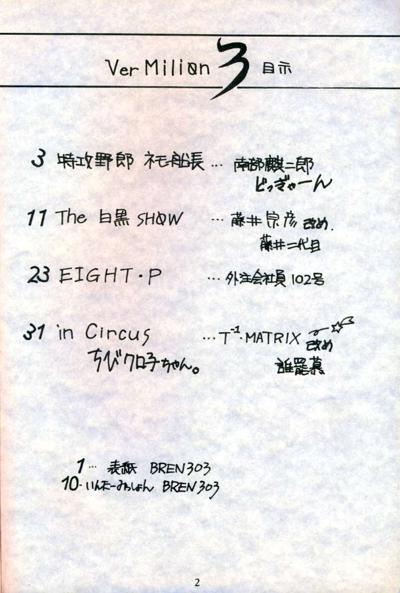 Ver Milion 3 目示
3 特攻野郎 ネモ船長 … 南部麒二郎
ピッぎゃーん
11 The 白黒 SHOW … 藤井宗彦 改め.
藤井二代目
23 EIGHT・P … 外注会社員 102号
31 in Circus … T⁻¹・MATRIX 改め
ちびクロ子ちゃん。
1 … 表紙 BREN303
10 … いんたーみっしょん BREN303
2